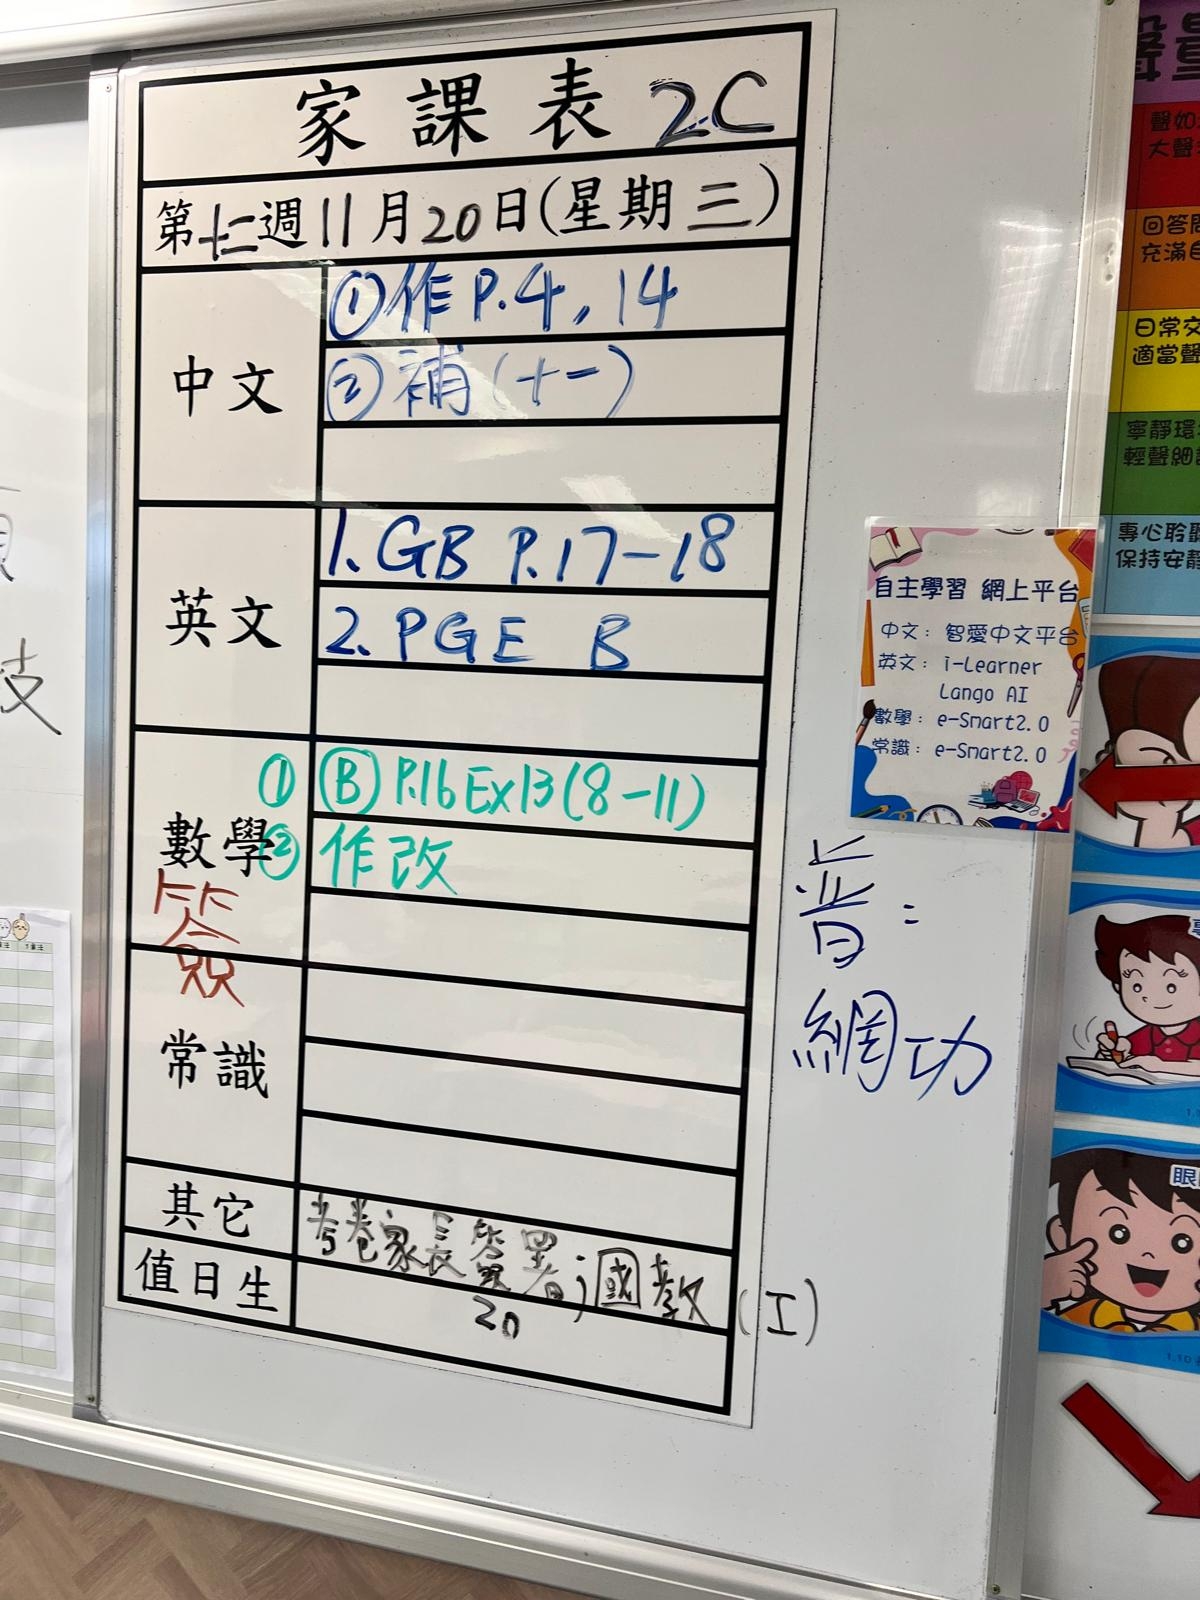 家課表 2C
第十二週 11月20日(星期三)
中文
① 作 P.4, 14
② 補(十一)
英文
1. GB P.17-18
2. PGE B
數學
① Ⓑ P.16 Ex13(8-11)
② 作改
簽
常識
其它
考卷家長簽署;國教(工)
值日生
20
普:
網功
自主學習 網上平台
中文: 智愛中文平台
英文: i-Learner
Lango AI
數學: e-Smart2.0
常識: e-Smart2.0
聲如
大聲
回答問
充滿自
日常交
適當聲
寧靜環
輕聲細
專心聆聽
保持安靜
眼
技